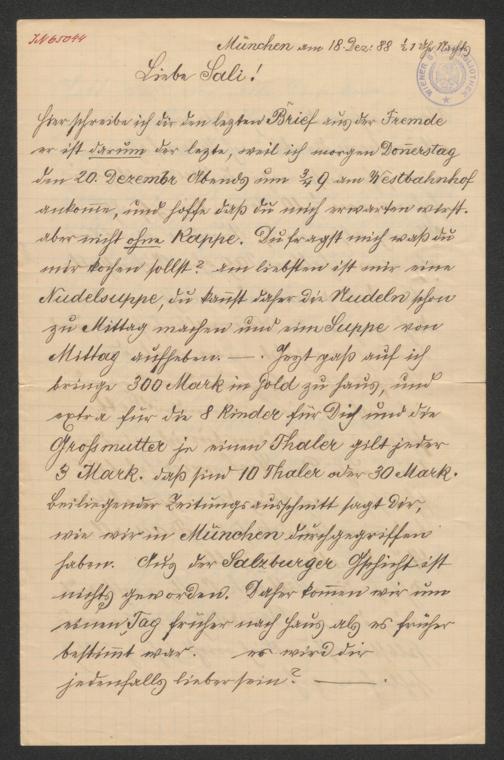 IN 65044
München am 18. Dez: 88 ½ 1 Uhr Nachts
WIENER BIBLIOTHEK
Liebe Sali!
hier schreibe ich dir den lezten Brief aus der Fremde
er ist darum der lezte, weil ich morgen Doñerstag
den 20. Dezembr Abends um ¾ 9 am Westbahnhof
ankom̃e, und hoffe daß du mich erwarten wirst.
aber nicht ohne Kappe. Du fragst mich waß du
mir kochen sollst? am liebsten ist mir eine
Nudelsuppe, du kañst daher die Nudeln schon
zu Mittag machen und eine Suppe von
Mittag aufheben. — . Jezt paß auf ich
bringe 300 Mark in Gold zu haus, und
extra für die 8 Kinder für Dich und die
Großmutter je einen Thaler gilt jeder
3 Mark. daß sind 10 Thaler oder 30 Mark.
beiliegender Zeitungsausschnitt sagt Dir,
wie wir in München durchgegriffen
haben. Aus der Salzburger Gschicht ist
nichts geworden. Daher kom̃en wir um
einen Tag früher nach haus als es früher
bestim̃t war. es wird dir
jedenfalls lieber sein? — .